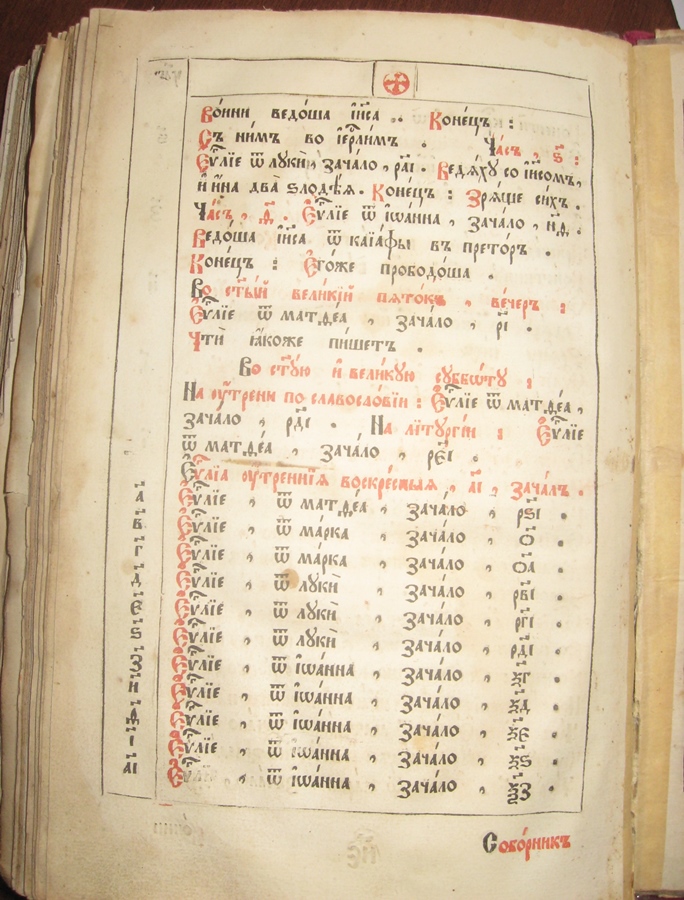 Во́ини ведо́ша і҆и҃са .. Коне́цъ :
Съ ни́мъ во і҆ерⷭ҇ли́мъ . Ча́съ , ѕ҃ :
Є҆ѵⷢ҇лїе ѿ лꙋкѝ , зача́ло , ра҃і . Ведѧ́хꙋ со і҆и҃сомъ ,
и҆ и҆́на два̀ ѕлодѣ́ѧ . Коне́цъ : Зрѧ́ще си́хъ .
Ча́съ , ѳ҃ . Є҆ѵⷢ҇лїе ѿ і҆ѡа́нна , зача́ло , нѳ҃ .
Ведо́ша і҆и҃са ѿ каїа́фы въ прето́ръ .
Коне́цъ : Є҆го́же прободо́ша .
Во ст҃ы́й вели́кїй пѧто́къ , ве́черъ :
Є҆ѵⷢ҇лїе ѿ матѳе́а , зача́ло , р҃і .
Чтѝ ꙗ҆́коже пи́шетъ .
Во ст҃ꙋ́ю и҆ вели́кꙋю сꙋббѡ́тꙋ :
На ᲂу҆́трени по славосло́вїи : Є҆ѵⷢ҇лїе ѿ матѳе́а ,
зача́ло , рд҃і . На лїтꙋргі́и : Є҆ѵⷢ҇лїе
ѿ матѳе́а , зача́ло , ре҃і .
Є҆ѵⷢ҇лїа ᲂу҆́треннїѧ воскрⷭ҇ныѧ , а҃і , зача́лъ .
а Є҆ѵⷢ҇лїе , ѿ матѳе́а , зача́ло , рѕ҃і .
в Є҆ѵⷢ҇лїе , ѿ ма́рка , зача́ло , о҃ .
г Є҆ѵⷢ҇лїе , ѿ ма́рка , зача́ло , ѻ҃а .
д Є҆ѵⷢ҇лїе , ѿ лꙋкѝ , зача́ло , рв҃і .
є Є҆ѵⷢ҇лїе , ѿ лꙋкѝ , зача́ло , рг҃і .
ѕ Є҆ѵⷢ҇лїе , ѿ лꙋкѝ , зача́ло , рд҃і .
з Є҆ѵⷢ҇лїе , ѿ і҆ѡа́нна , зача́ло , ѯ҃г .
и Є҆ѵⷢ҇лїе , ѿ і҆ѡа́нна , зача́ло , ѯ҃д .
ѳ Є҆ѵⷢ҇лїе , ѿ і҆ѡа́нна , зача́ло , ѯ҃є .
і Є҆ѵⷢ҇лїе , ѿ і҆ѡа́нна , зача́ло , ѯ҃ѕ .
аі Є҆ѵⷢ҇лїе , ѿ і҆ѡа́нна , зача́ло , ѯ҃з .
Собо́рникъ